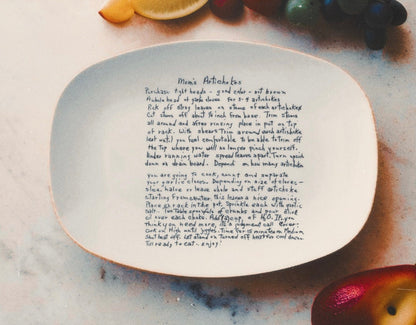 Mom's Artichokes
Purchase tight heads - good color - not brown
Whole head of garlic cloves for 3-4 artichokes
Pick off stray leaves on stems of each artichoke
Cut stems off about ½ inch from base. Trim stems
all around and after rinsing place in pot on top
of rack. With shears trim around each artichoke
leaf until you feel comfortable to be able to trim off
the tip where you will no longer pinch yourself.
Under running water spread leaves apart. Turn upside
down on drain board. Depend on how many artichokes
you are going to cook, and separate
your garlic cloves. Depending on size of cloves -
slice, halve or leave whole and stuff artichoke
starting from center, this leaves a nice opening.
Place on rack in the pot. Sprinkle each with garlic
salt - tablespoonfuls of crumbs and pour olive
oil over each choke. Add cup of H2O. If you
think you need more, it's a judgement call. Cover.
Cook on High until jiggles. Time for 15 minutes on Medium
Shut heat off. Let stand on turned off heat to cool down.
Til ready to eat - enjoy!